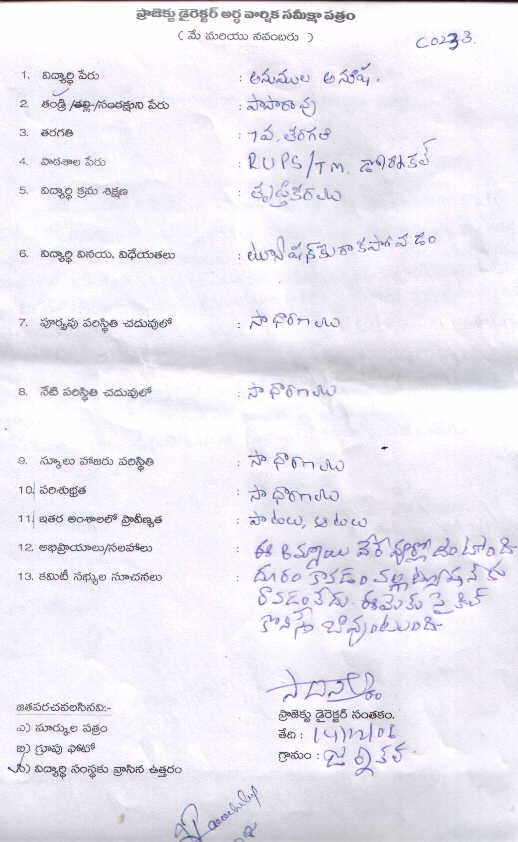 ప్రాజెక్టు డైరెక్టర్ అర్ధ వార్షిక సమీక్షా పత్రం
( మే మరియు నవంబరు )
C0233.
1. విద్యార్థి పేరు : అనుముల అనూష.
2. తండ్రి /తల్లి/సంరక్షుని పేరు : పాపారావు
3. తరగతి : 7వ. తరగతి
4. పాఠశాల పేరు : RUPS/TM.
5. విద్యార్థి క్రమ శిక్షణ : తృప్తికరము
6. విద్యార్థి వినయ, విధేయతలు : ట్యూషన్‌కు రాకపోవడం
7. పూర్వపు పరిస్థితి చదువులో : సాధారణము
8. నేటి పరిస్థితి చదువులో : సాధారణము
9. స్కూలు హాజరు పరిస్థితి : సాధారణము
10. పరిశుభ్రత : సాధారణము
11. ఇతర అంశాలలో ప్రావీణ్యత : పాటలు, ఆటలు
12. అభిప్రాయాలు/సలహాలు : ఈ అమ్మాయి వేరే వూర్లో ఉంటుంది
13. కమిటీ సభ్యుల సూచనలు : దూరం కావడం వల్ల ట్యూషన్ కు
రావడంలేదు. ఈమెకు సైకిల్
కొనిస్తే బావుంటుంది
జతపరచవలసినవి:-
ప్రాజెక్టు డైరెక్టర్ సంతకం.
ఎ) మార్కుల పత్రం
తేది : 14/12/06
బి) గ్రూపు ఫోటో
గ్రామం :
సి) విద్యార్థి సంస్థకు వ్రాసిన ఉత్తరం